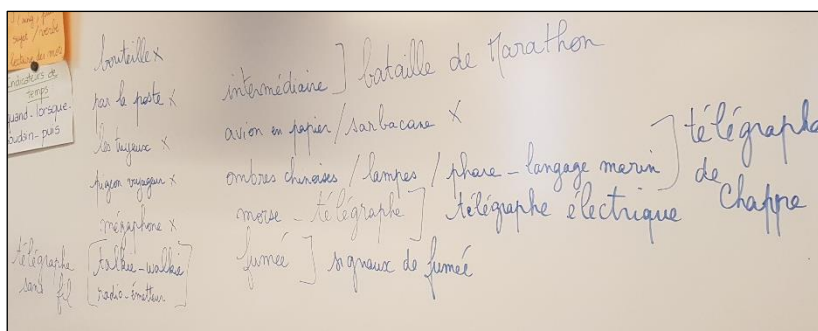 sujet / verbe
lecture des mots
indicateurs de
temps
quand - lorsque -
soudain - puis
bouteille x
par la poste x
les tuyaux x
pigeon voyageur x
mégaphone x
télégraphe
sans fil
[talkie-walkie
radio-émetteur]
intermédiaire ] bataille de Marathon
avion en papier / sarbacane x
ombres chinoises / lampes / phare - langage marin ] télégraphe
de
Chappe
morse - télégraphe ] télégraphe électrique
fumée ] signaux de fumée